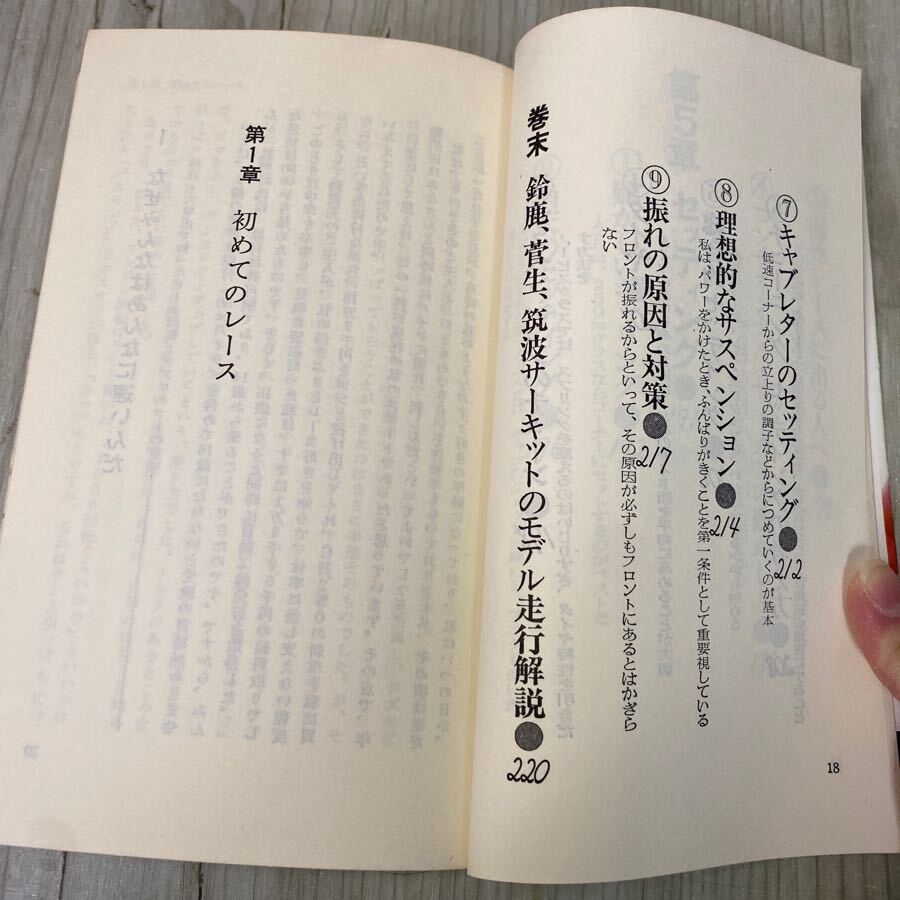 ⑦キャブレターのセッティング●212
低速コーナーからの立上りの調子などからにつめていくのが基本
⑧理想的なサスペンション●214
私は、パワーをかけたとき、ふんばりがきくことを第一条件として重要視している
⑨振れの原因と対策●217
フロントが振れるからといって、その原因が必ずしもフロントにあるとはかぎら
ない
巻末 鈴鹿、菅生、筑波サーキットのモデル走行解説●220
18
第1章 初めてのレース